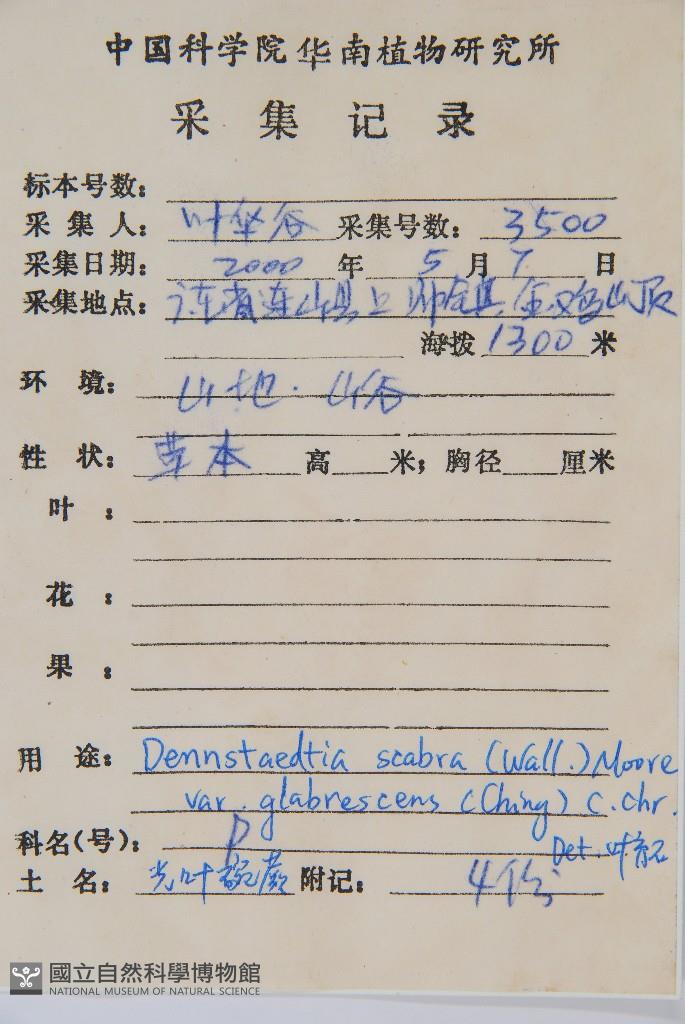 中国科学院华南植物研究所
采集记录
标本号数：
采集人：叶华谷 采集号数：3500
采集日期：2000年5月7日
采集地点：广东省连山县上帅 山顶
海拨1300米
环境：山地．山谷
性状：草本 高 米；胸径 厘米
叶：
花：
果：
用途：Dennstaedtia scabra (Wall.) Moore
var. glabrescens (Ching) C. Chr.
科名(号)：P
Det. 叶育石
土名：光叶碗蕨 附记：4份
國立自然科學博物館
NATIONAL MUSEUM OF NATURAL SCIENCE